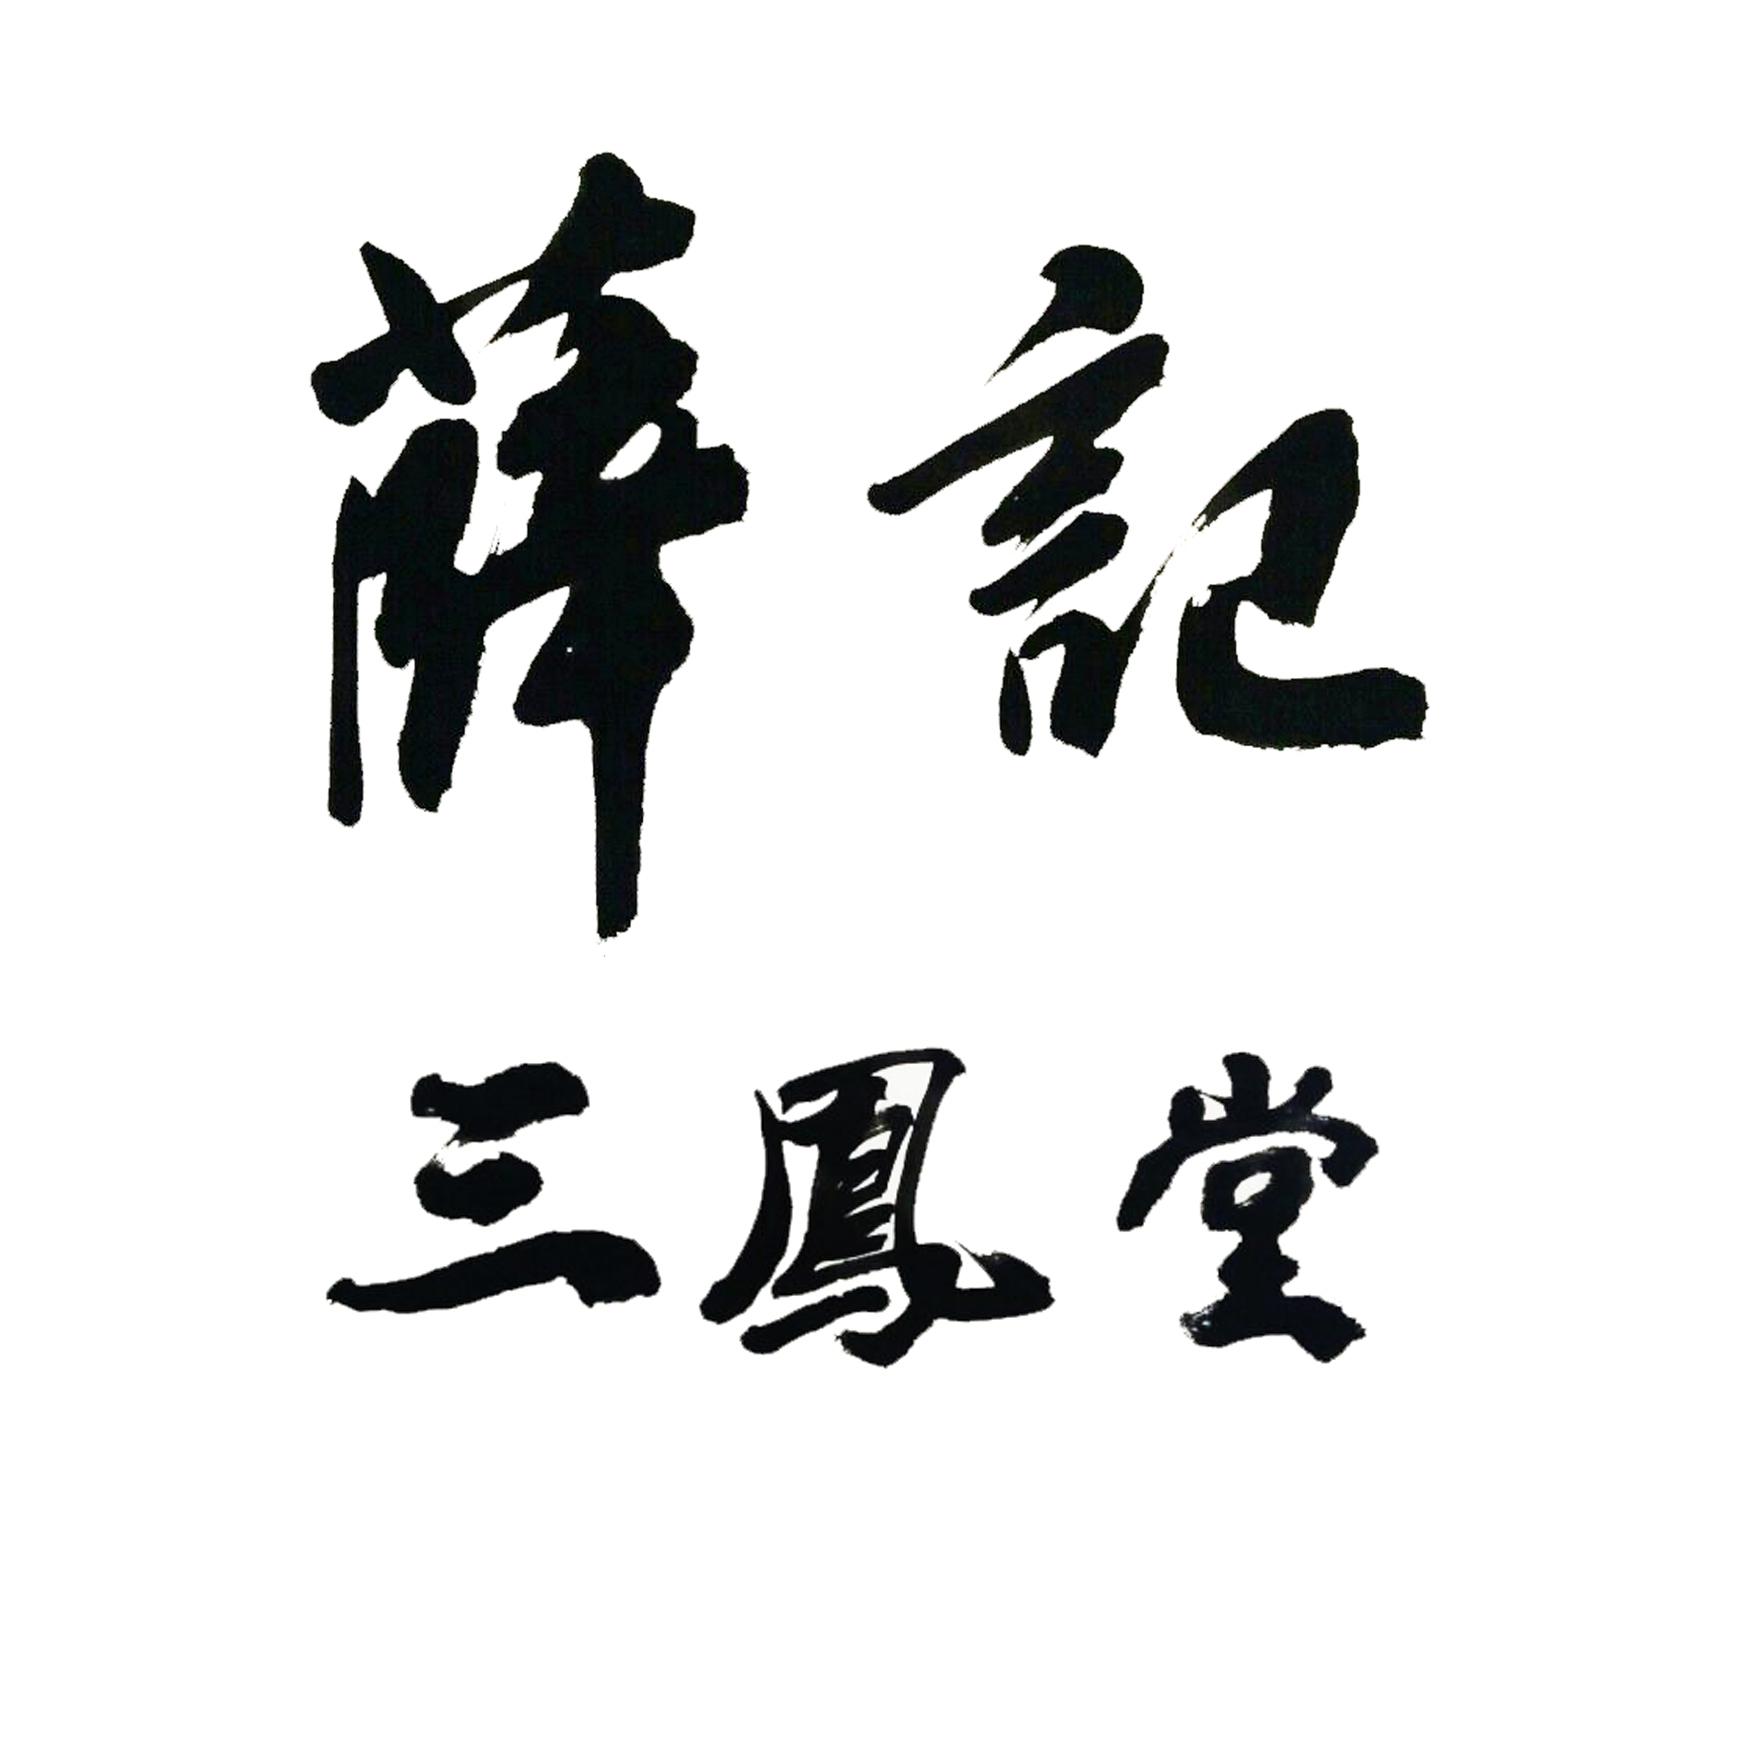 薛記
三鳳堂